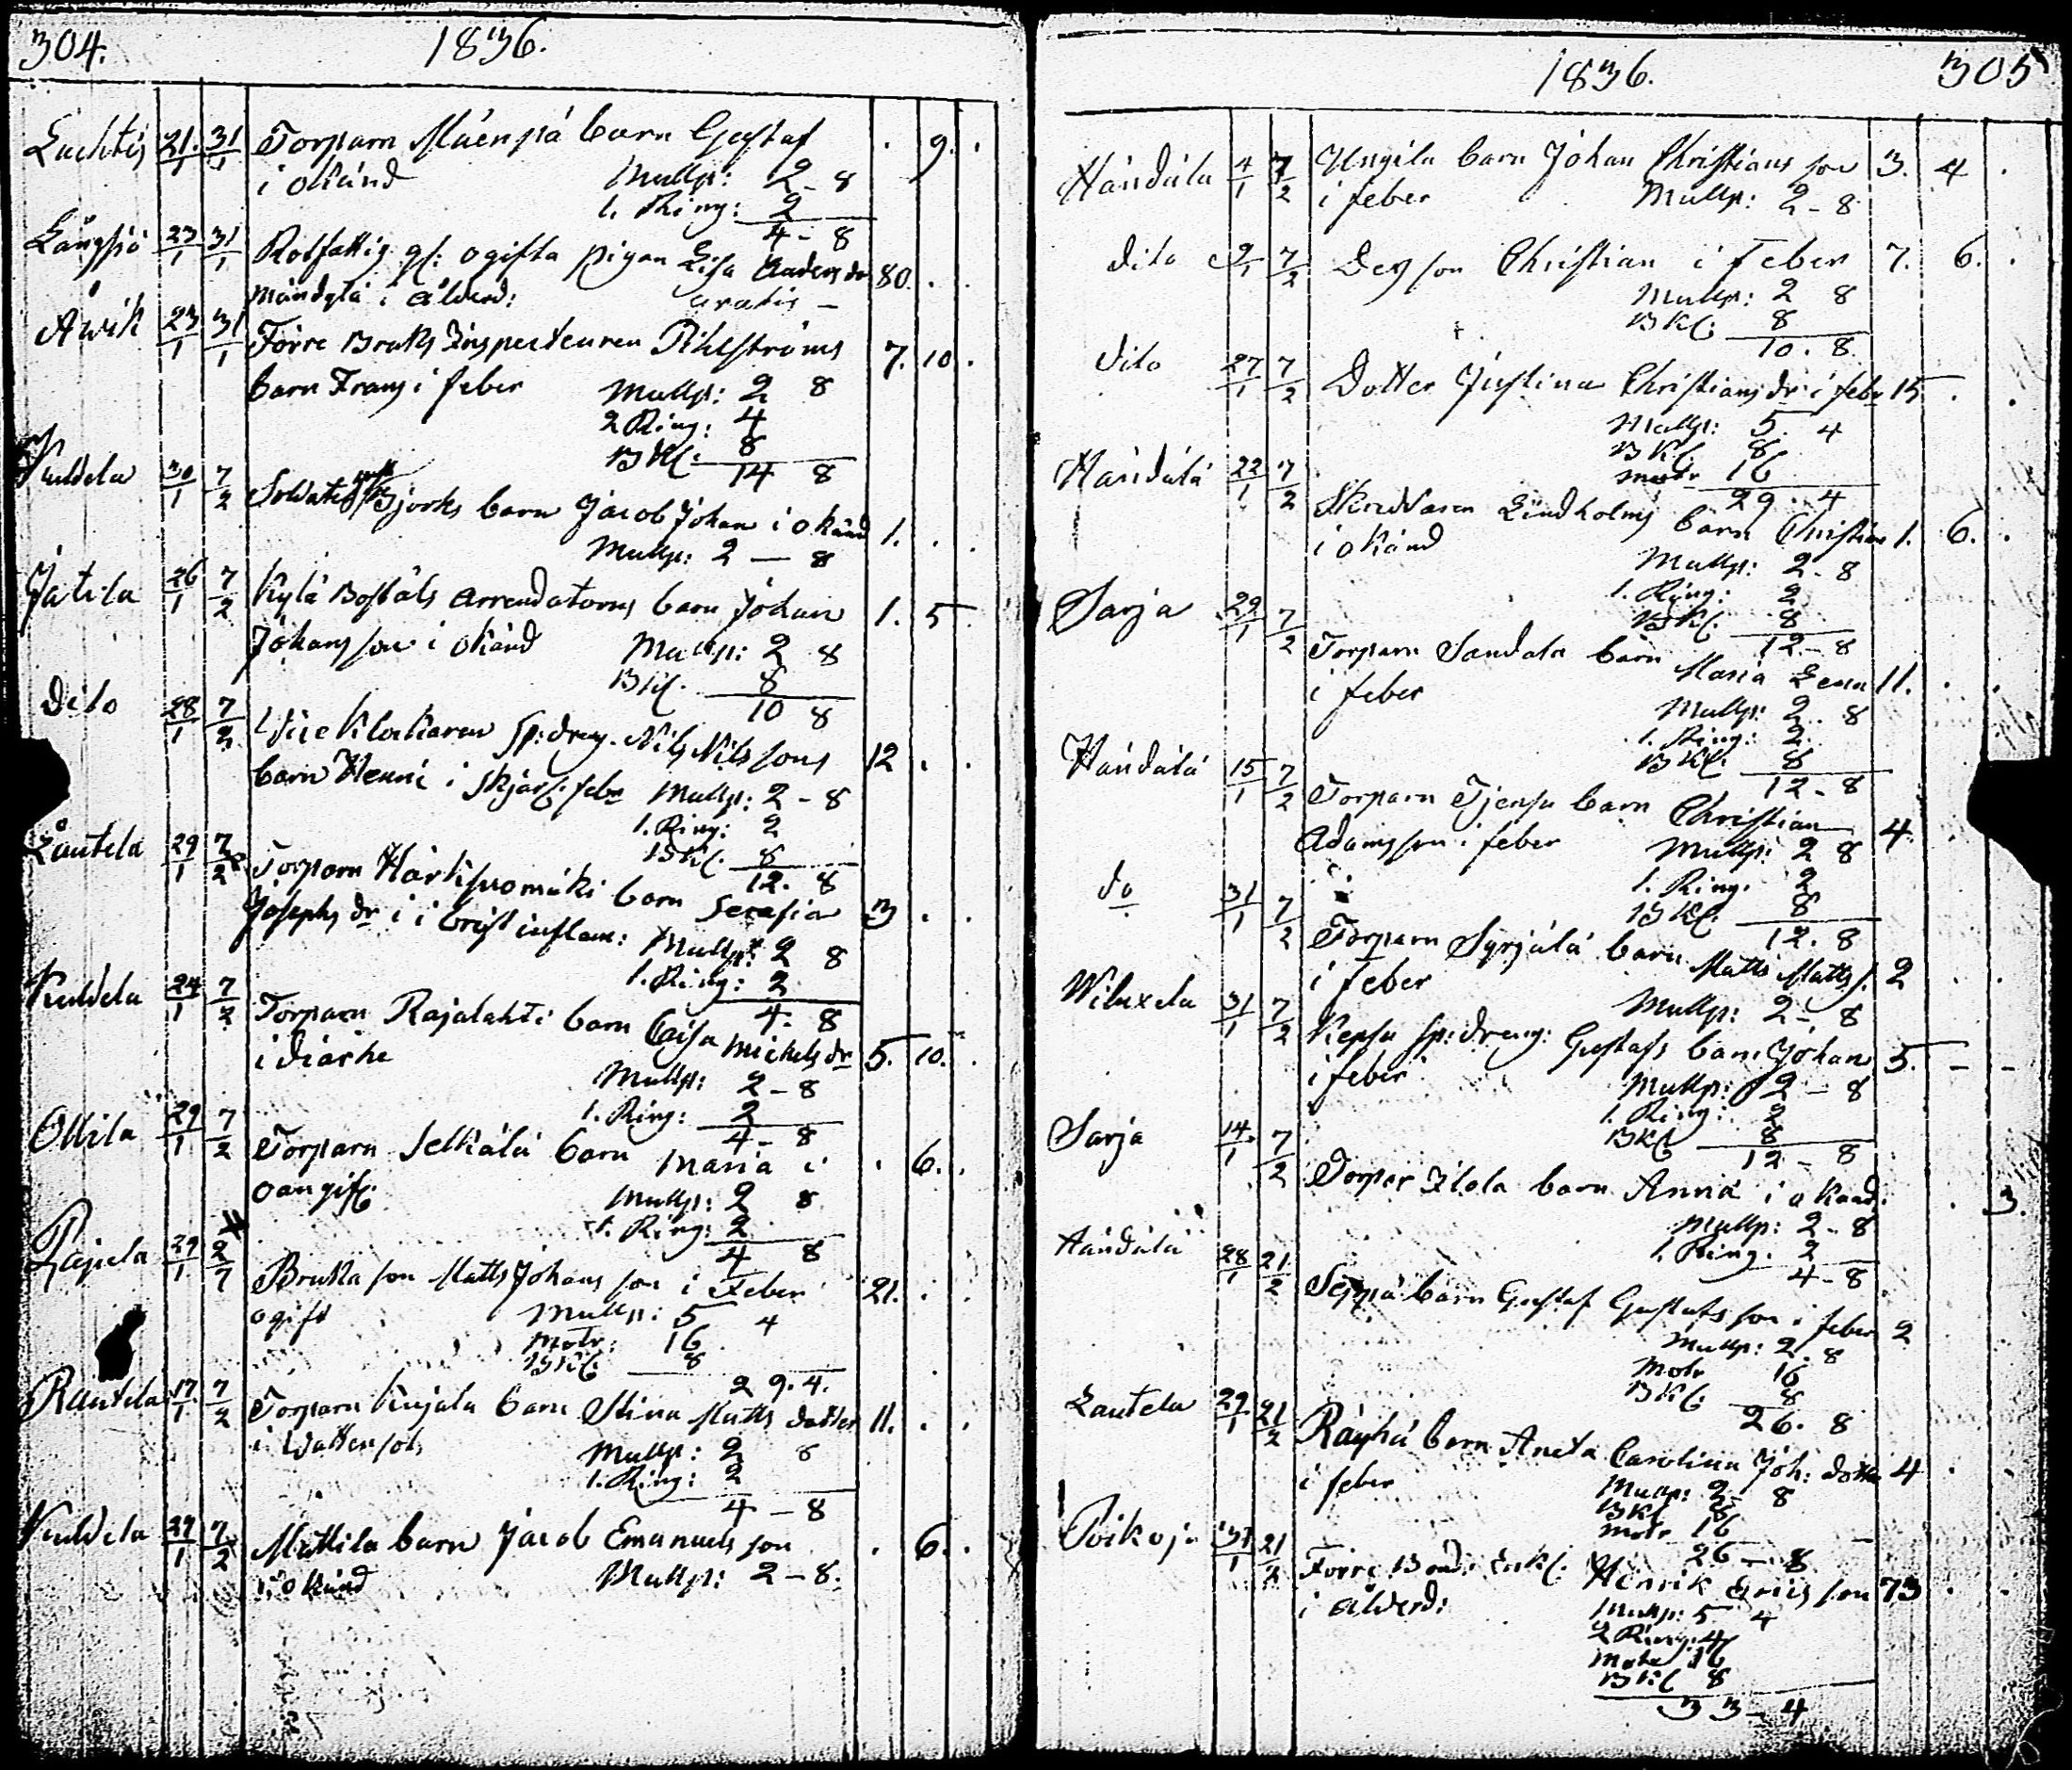 304. 1836.
Lachtis 21/1 31/1 Torparn Mäenpä barn Gustaf . 9. .
i okänd Mullp: 2-8
1. Ring: 2
4-8
Långsjö 23/1 31/1 Rotfattig gl: ogifta pigan Lisa Anders dr 80. . .
i ålderd: gratis –
Åvik 23/1 31/1 Förre Bruks Inspecteuren Pihlströms 7. 10.
barn Frans i feber Mullp: 2 8
2 Ring: 4
BKl: 8
14 8
Kuldela 30/1 7/2 Soldaten Björks barn Jacob Johan i okänd 1. . .
Mullp: 2 — 8
Jatila 26/1 7/2 Kylä Boställs Arrendatorns barn Johan 1. 5
Johansson i okänd Mullp: 2 8
BKl. 8
10 8
Dito 28/1 7/2 Vice Klockaren Sp: dreng. Nils Nilssons 12 . .
barn Henric i skjarl: feber Mullp: 2-8
1. Ring: 2
BKl. 8
12. 8
Lautela 29/1 7/2 Torparn Härkisuomäki barn Serafia 3 . .
Josephs dr i bröst inflam: Mullp: 2 8
1. Ring: 2
4. 8
Kuldela 24/1 7/2 Torparn Rajalahti barn Caisa Michels dr 5. 10.
i diarhe Mullp: 2-8
1. Ring: 2
4-8
Ollila 29/1 7/2 Torparn Selkälä barn Maria i . 6. .
oangif: Mullp: 2 8
1. Ring: 2
4 8
29/1 2/7 Brukka son Matts Johansson i Feber 21. . .
ogift Mullp: 5 4
Motr: 16
BKl: 8
29. 4.
Rautela 17/1 7/2 Torparn Kujala barn Stina Matts dotter 11. . .
i Wattensot Mullp: 2 8
1. Ring: 2
4-8
Kuldela 29/1 7/2 Mattila barn Jacob Emanuelsson . 6. .
i okänd Mullp: 2-8.
1836. 305
Händälä 4/1 7/2 Ungila barn Johan Christians son 3. 4 .
i feber Mullp: 2-8
Dito 9/1 7/2 Des son Christian i Feber 7. 6. .
Mullp: 2 8
BKl: 8
10. 8.
Dito 27/1 7/2 Dotter Justina Christians dr i feber 15 . .
Mullp: 5. 4
BKl. 8
motr 16
29. 4
Händälä 22/1 7/2 Skreddaren Lindholms barn Christian 1. 6. .
i okänd Mullp: 2-8
1. Ring: 2
BKl. 8
12-8
Sarja 29/1 7/2 Torparn Sandala barn Maria Lena 11. . .
i feber Mullp: 2. 8
1. Ring: 2.
BKl. 8
12-8
Händälä 15/1 7/2 Torparn Tjensu barn Christian 4. .
Adamsson i feber Mullp: 2 8
1. Ring. 2
BKl. 8
12. 8
do 31/1 7/2 Torparn Syrjälä barn Matts Matts s. 2 . .
i feber Mullp: 2-8
Wiluxela 31/1 7/2 Kepsu Sp: dreng: Gustafs barn Johan 5. – –
i feber Mullp: 2-8
1. Ring: 2
BKl 8
12-8
Sarja 14/1 7/2 Torpar Ilola barn Anna i okänd. . 3.
Mullp: 2-8
1. Ring. 2
4-8
Händälä 28/1 21/2 Seppä barn Gustaf Gustafsson i feber 2
Mullp: 2. 8
Motr 16
BKl. 8
26. 8
Lautela 29/1 21/2 Räyhä barn Aneta Carolina Joh: dotter 4 . .
i feber Mullp: 2- 8
BKl 8
motr 16
26 – 8
Poikoja 31/1 21/2 Förre Bond: Enkl: Henrik Ericsson 73 . .
i ålderd: Mullp: 5 4
2 Ring: 4
Motr 16
BKl 8
33-4